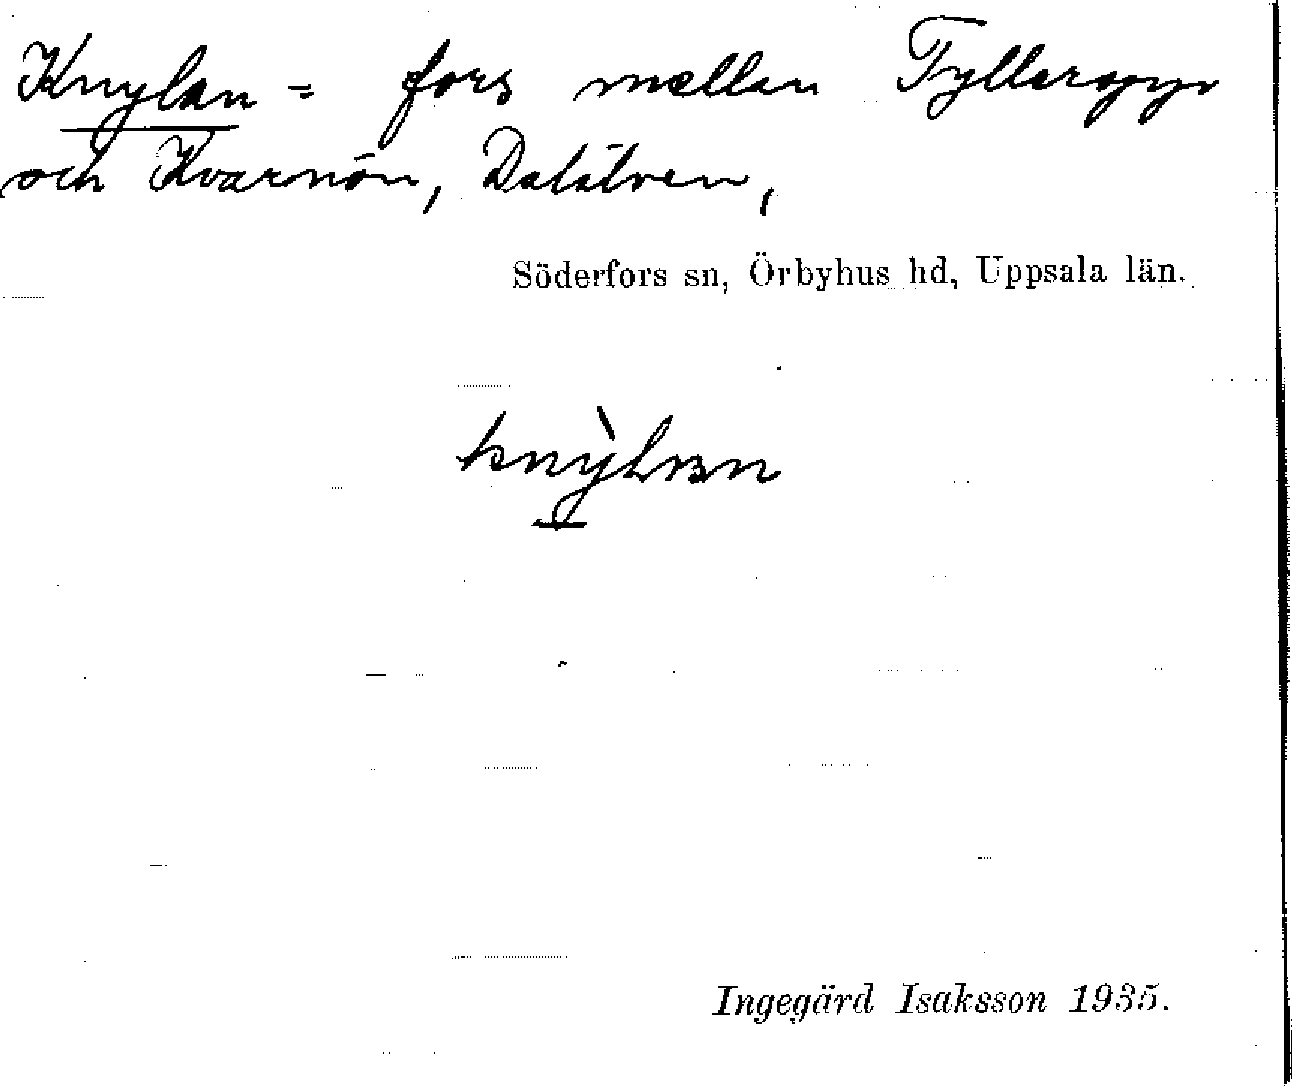 Knylan = fors mellan
och Kvarnön, Dalälven,
Söderfors sn, Örbyhus hd, Uppsala län.
Ingegärd Isaksson 1935.